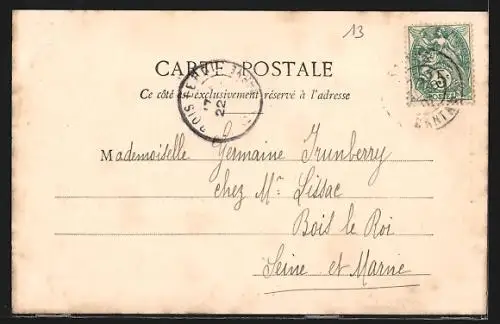 13
CARTE POSTALE
Ce côté est exclusivement réservé à l'adresse
BOIS-LE-ROI
17
22
5
Mademoiselle Germaine Trunberry
chez Mr Lissac
Bois le Roi
Seine et Marne